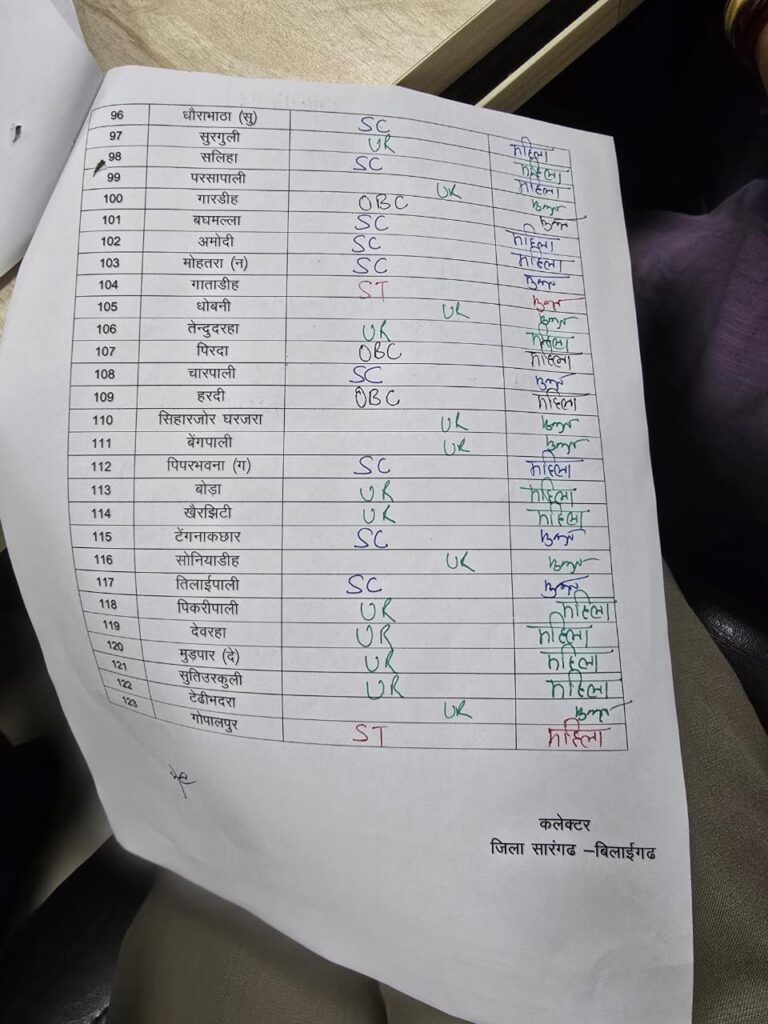 96 धौराभाठा (सु) SC महिला
97 सुरगुली UR महिला
98 सलिहा SC महिला
99 परसापाली UR मुक्त
100 गारडीह OBC मुक्त
101 बघमल्ला SC महिला
102 अमोदी SC महिला
103 मोहतरा (न) SC मुक्त
104 गाताडीह ST मुक्त
105 धोबनी UR मुक्त
106 तेन्दुदरहा UR महिला
107 पिरदा OBC महिला
108 चारपाली SC मुक्त
109 हरदी OBC महिला
110 सिहारजोर घरजरा UR मुक्त
111 बेंगपाली UR मुक्त
112 पिपरभवना (ग) SC महिला
113 बोड़ा UR महिला
114 खैरझिटी UR महिला
115 टेंगनाकछार SC मुक्त
116 सोनियाडीह UR मुक्त
117 तिलाईपाली SC मुक्त
118 पिकरीपाली UR महिला
119 देवरहा UR महिला
120 मुड़पार (दे) UR महिला
121 सुतिउरकुली UR महिला
122 टेढीभदरा UR मुक्त
123 गोपालपुर ST महिला
कलेक्टर
जिला सारंगढ –बिलाईगढ